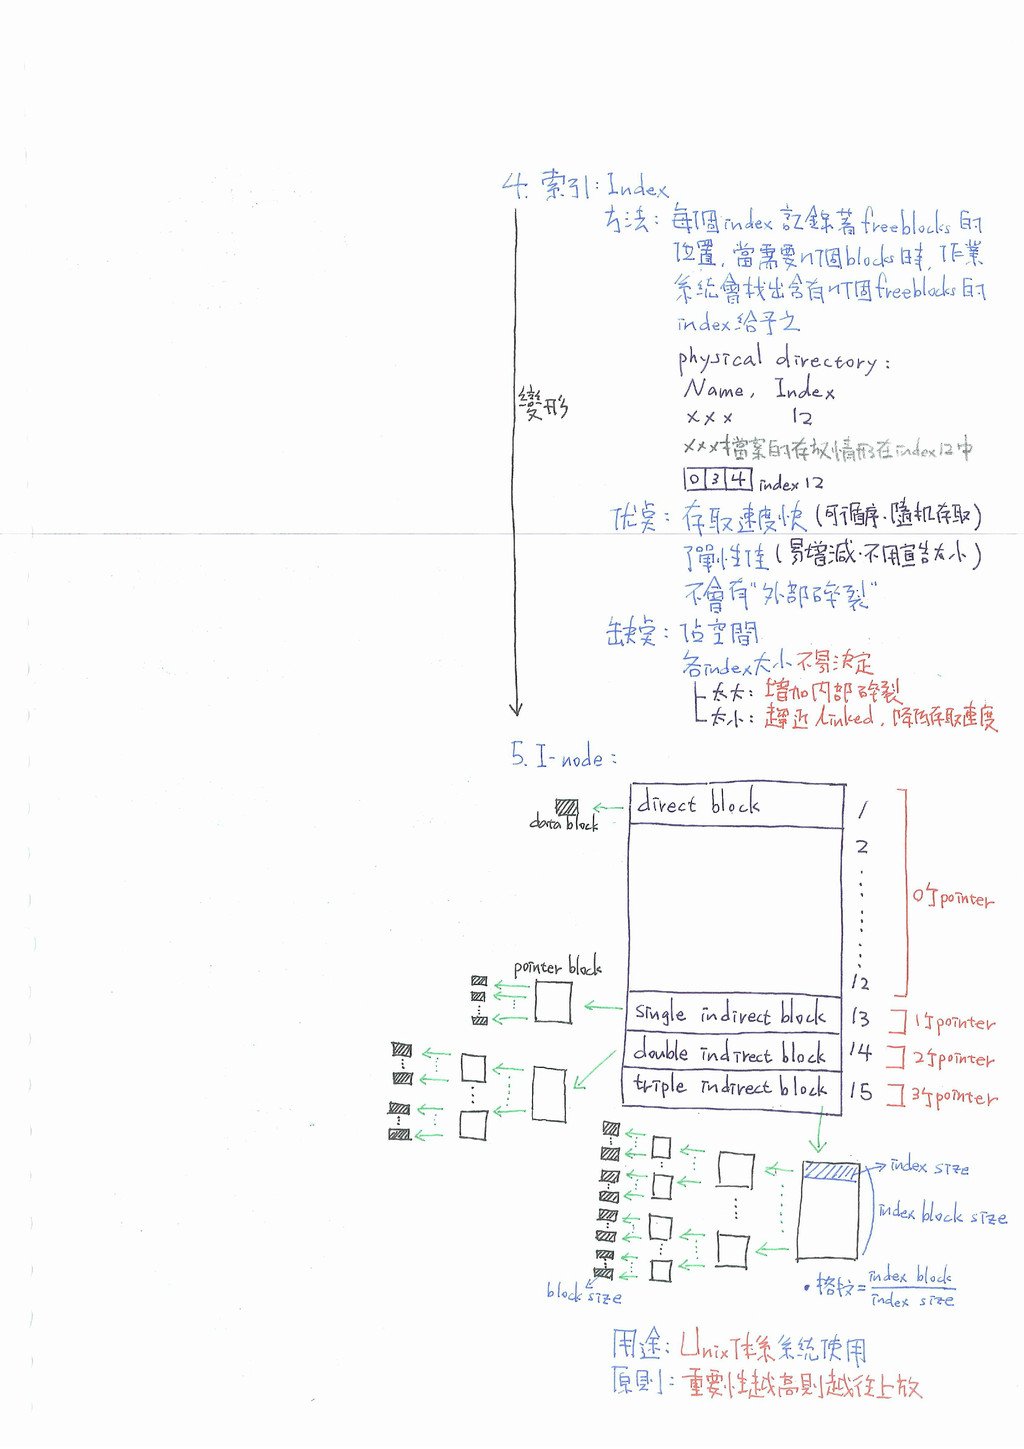 4. 索引: Index
方法: 每個index 記錄著freeblocks 的
位置, 當需要n個blocks時, 作業
系統會找出含有n個freeblocks的
index給予之
physical directory:
Name, Index
xxx 12
xxx檔案的存放情形在index12中
0 3 4 index 12
變形
优点: 存取速度快 (可循序.隨机存取)
彈性佳 (易增減.不用宣告大小)
不會有"外部碎裂"
缺点: 佔空間
各index大小不易決定
太大: 增加内部碎裂
太小: 趨近linked, 降低存取速度
5. I-node:
direct block 1
data block
2
12
0个pointer
pointer block
single indirect block 13 1个pointer
double indirect block 14 2个pointer
triple indirect block 15 3个pointer
index size
index block size
block size
•格數= index block
index size
用途: Unix体系系統使用
原則: 重要性越高則越往上放